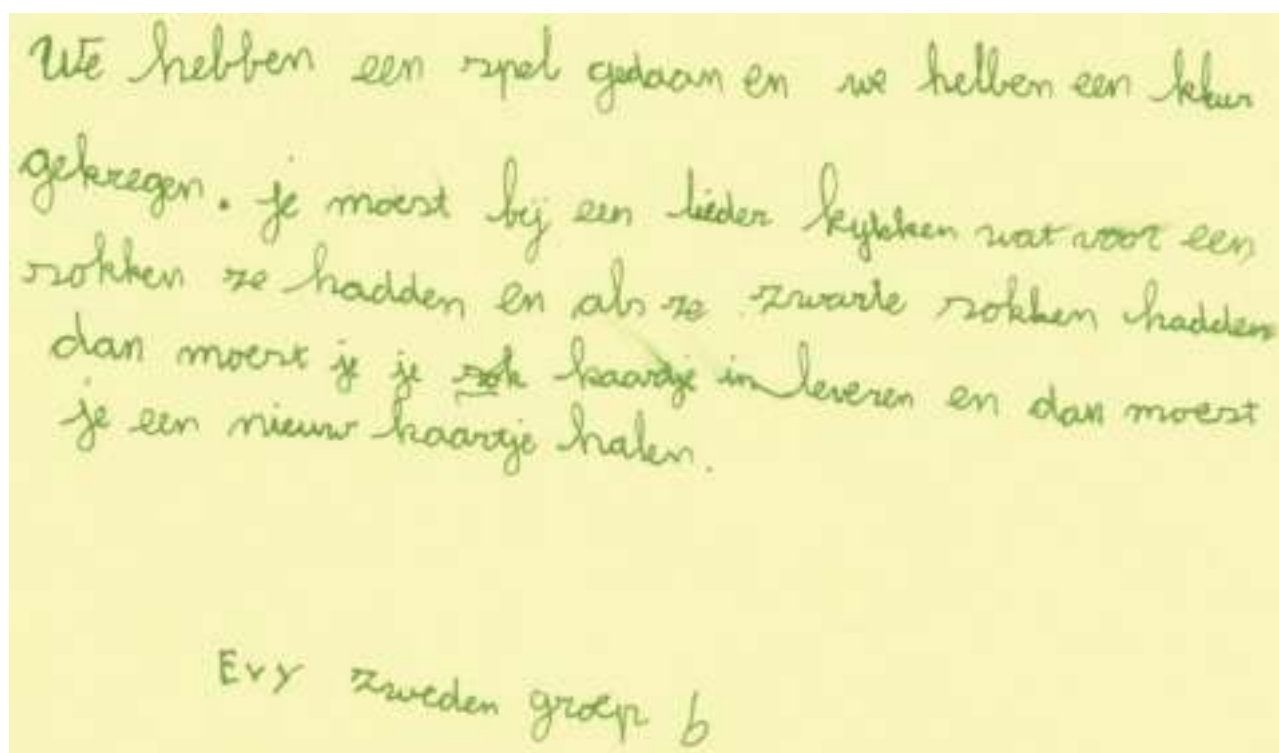 We hebben een spel gedaan en we hebben een kleur
gekregen. je moest bij een lieder kijkken wat voor een
sokken ze hadden en als ze zwarte sokken hadden
dan moest je je sok kaartje in leveren en dan moest
je een nieuw kaartje halen.
Evy zweden groep 6